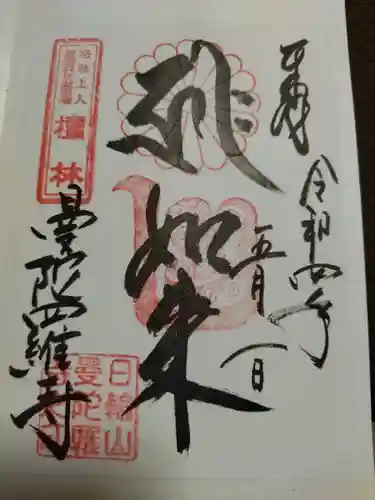 奉拝
令和四年
五月八日
如来
上人
檀林
曼陀羅寺
日輪山
曼陀羅